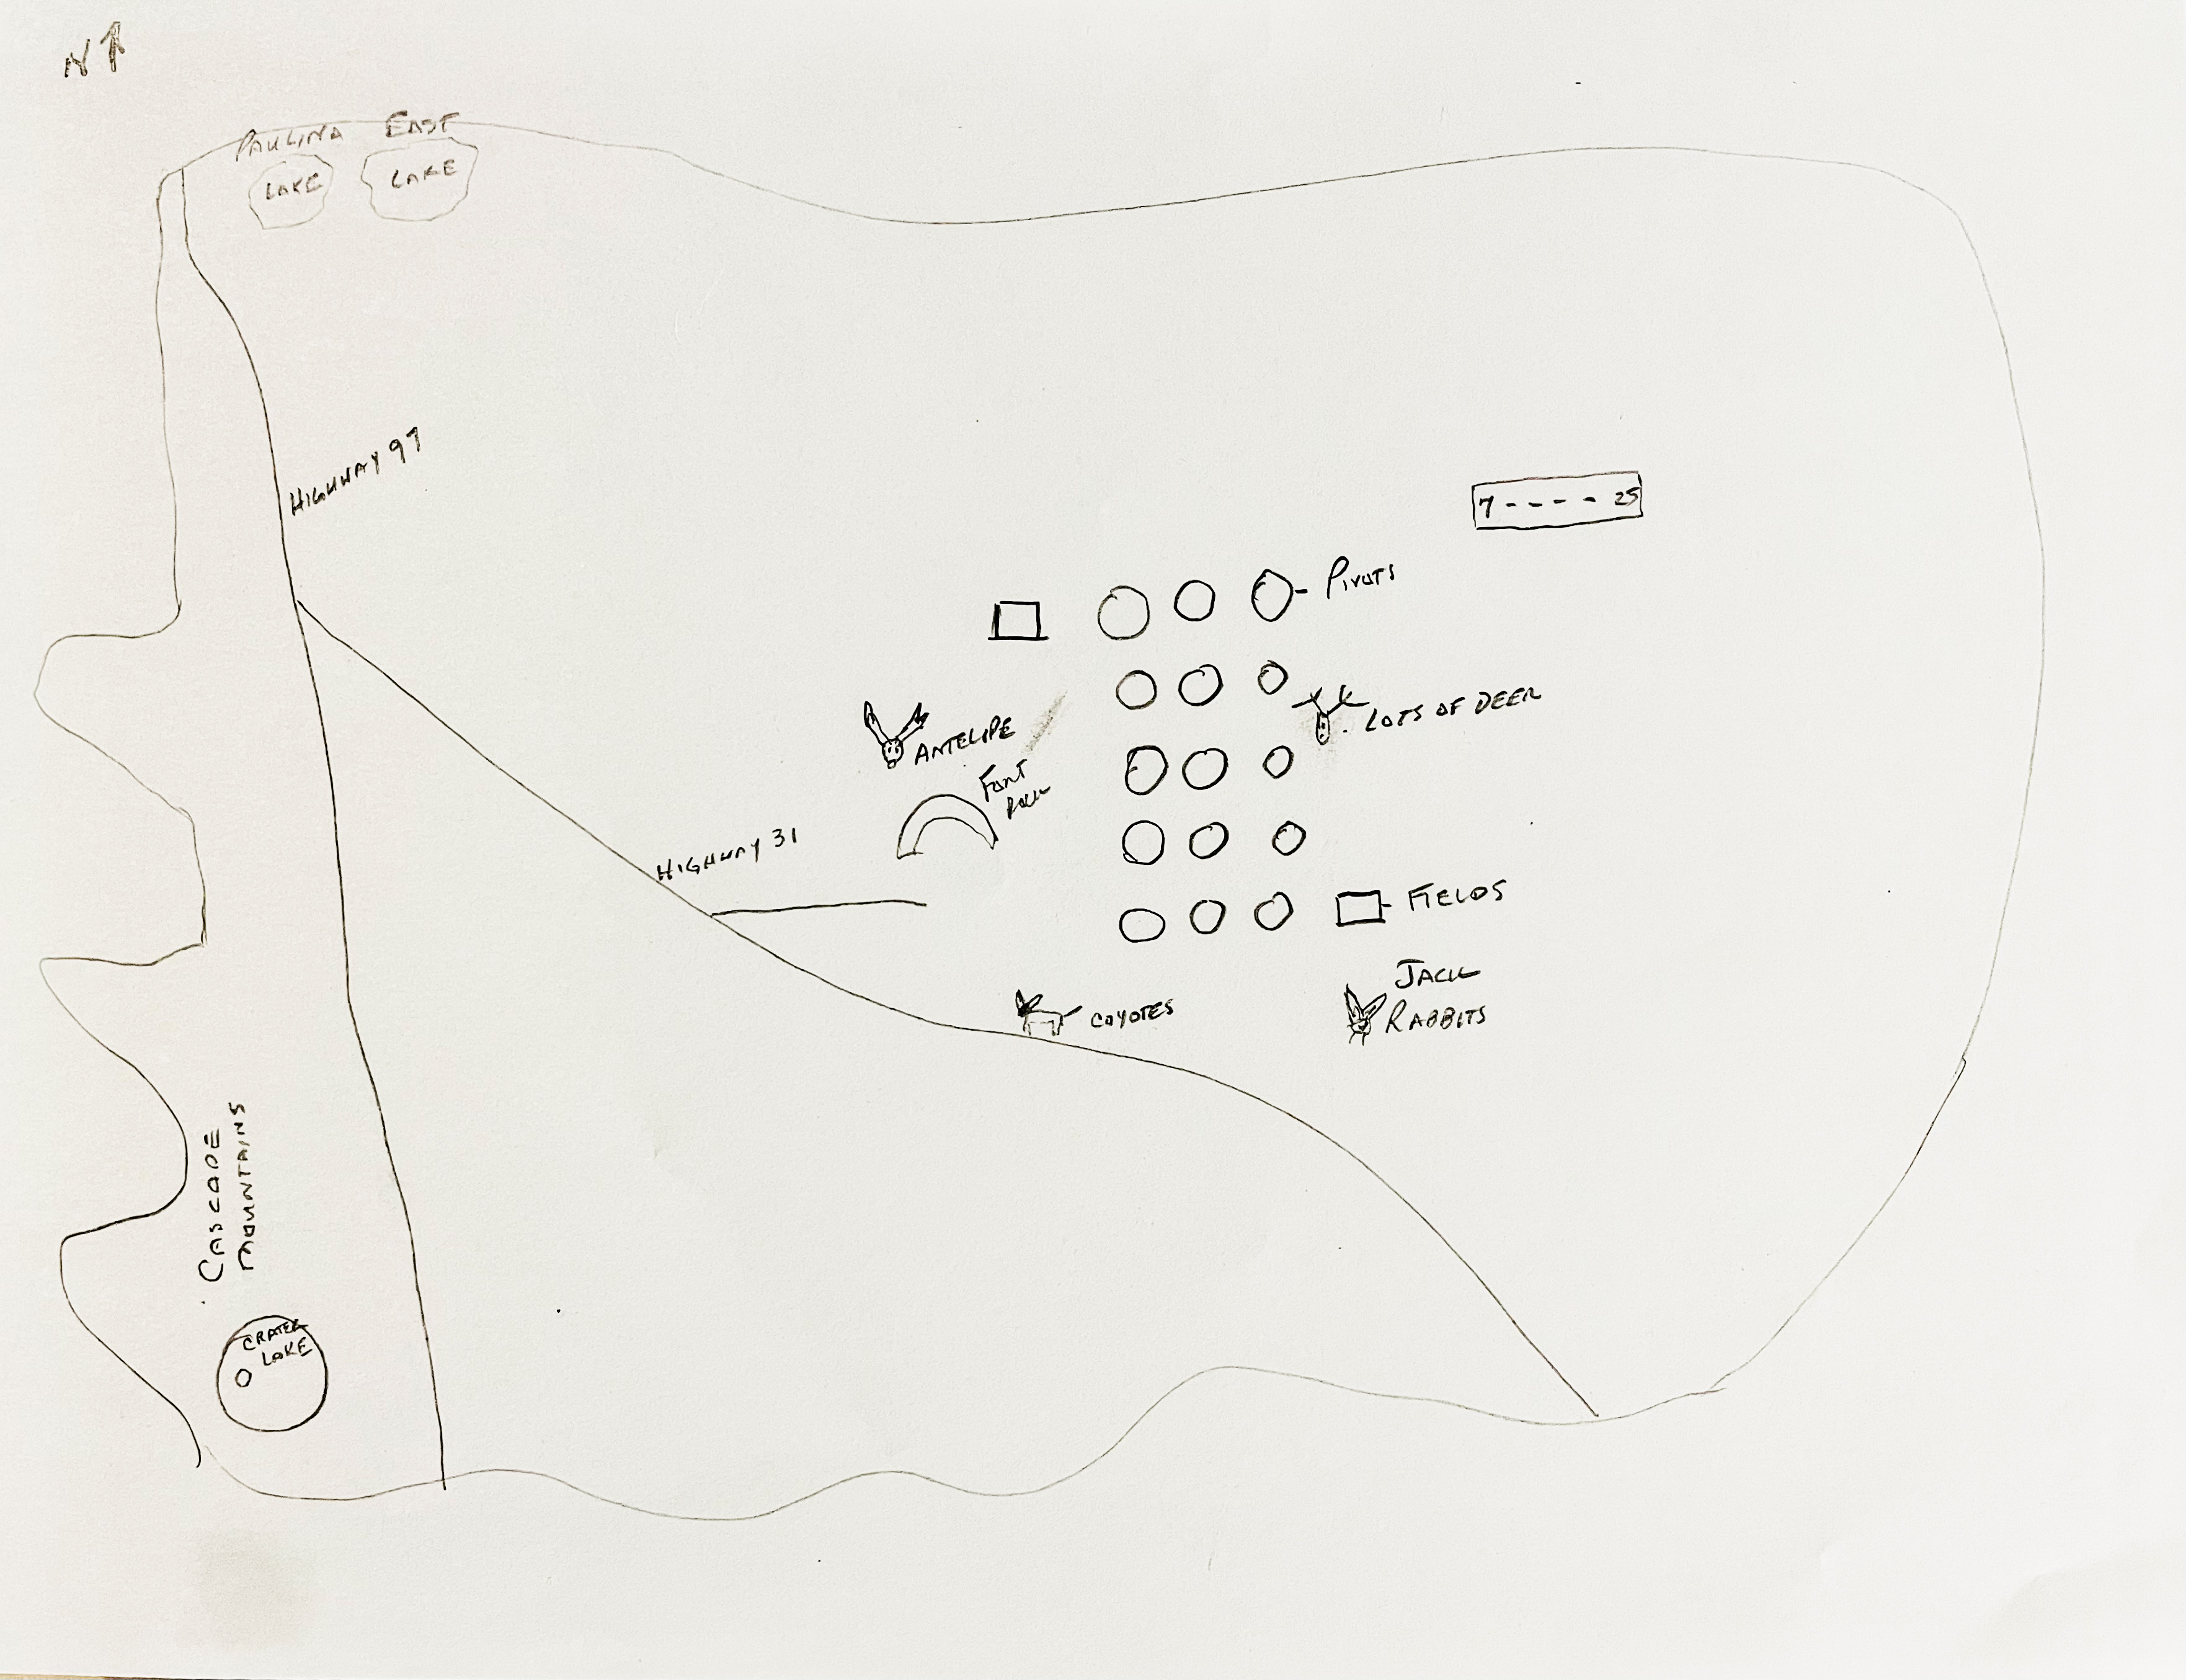 N
PAULINA EAST
LAKE LAKE
HIGHWAY 97
7 - - - - 25
PIVOTS
LOTS OF DEER
ANTELIPE
FORT
ROCK
HIGHWAY 31
FIELDS
JACK
RABBITS
COYOTES
CASCADE
MOUNTAINS
CRATER
LAKE